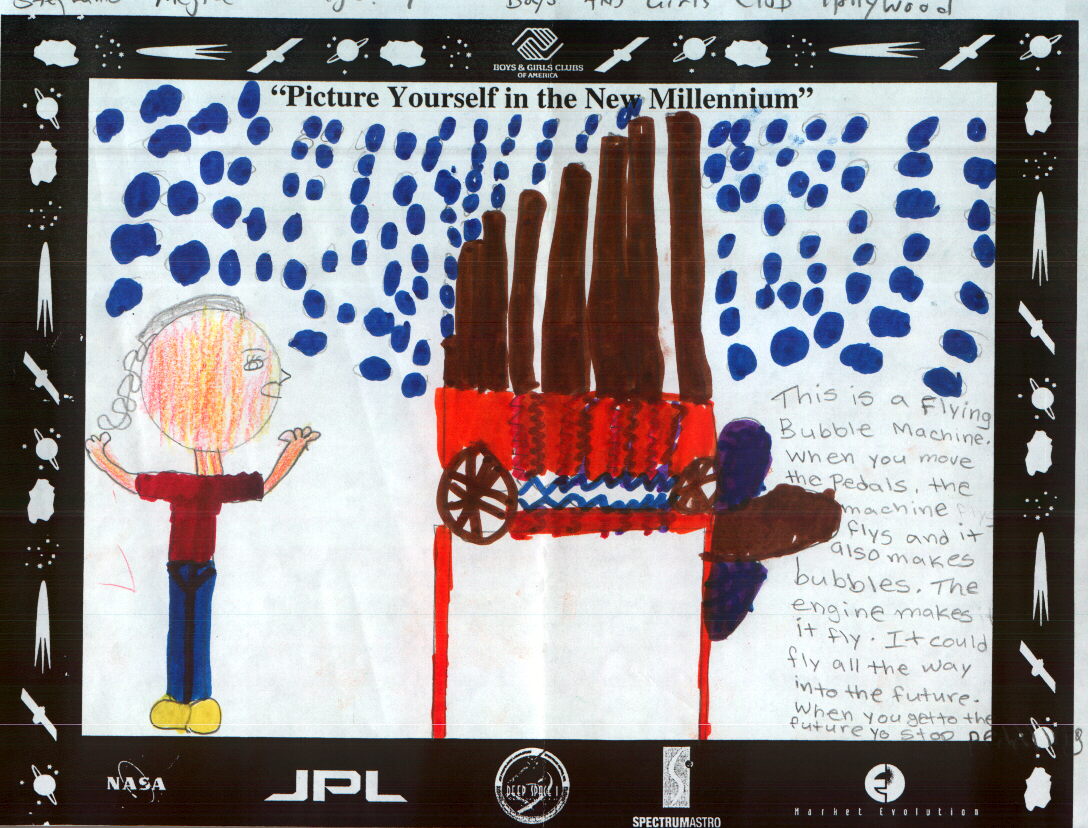 Boys And Girls Club Hollywood
BOYS & GIRLS CLUBS
OF AMERICA
“Picture Yourself in the New Millennium”
This is a Flying
Bubble Machine.
When you move
the Pedals, the
machine
flys and it
also makes
bubbles. The
engine makes
it fly. It could
fly all the way
into the future.
When you get to the
future yo stop
NASA
JPL
DEEP SPACE 1
SPECTRUMASTRO
Market Evolution